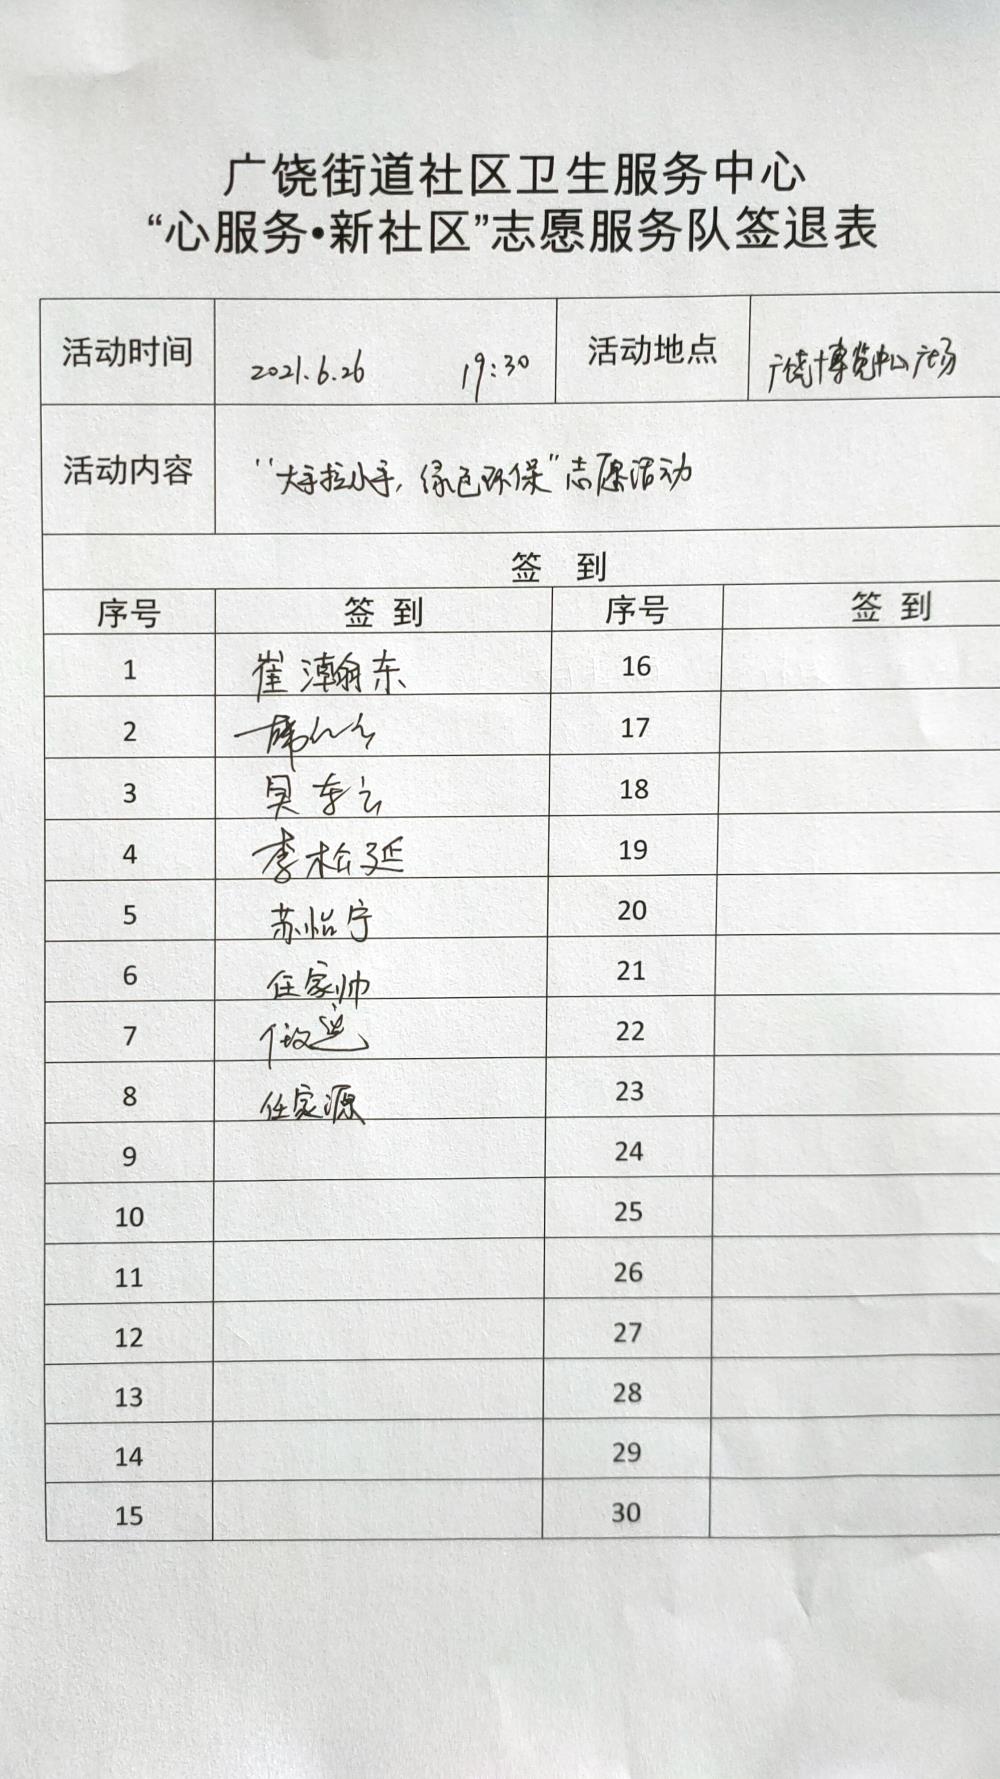 广饶街道社区卫生服务中心
“心服务•新社区”志愿服务队签退表
活动时间 2021.6.26 19:30 活动地点 广饶博览中心广场
活动内容 “大手拉小手,绿色环保”志愿活动
签 到
序号 签 到 序号 签 到
1 崔瀚东 16
2 17
3 18
4 李松延 19
5 苏怡宁 20
6 任家帅 21
7 22
8 任家源 23
9 24
10 25
11 26
12 27
13 28
14 29
15 30